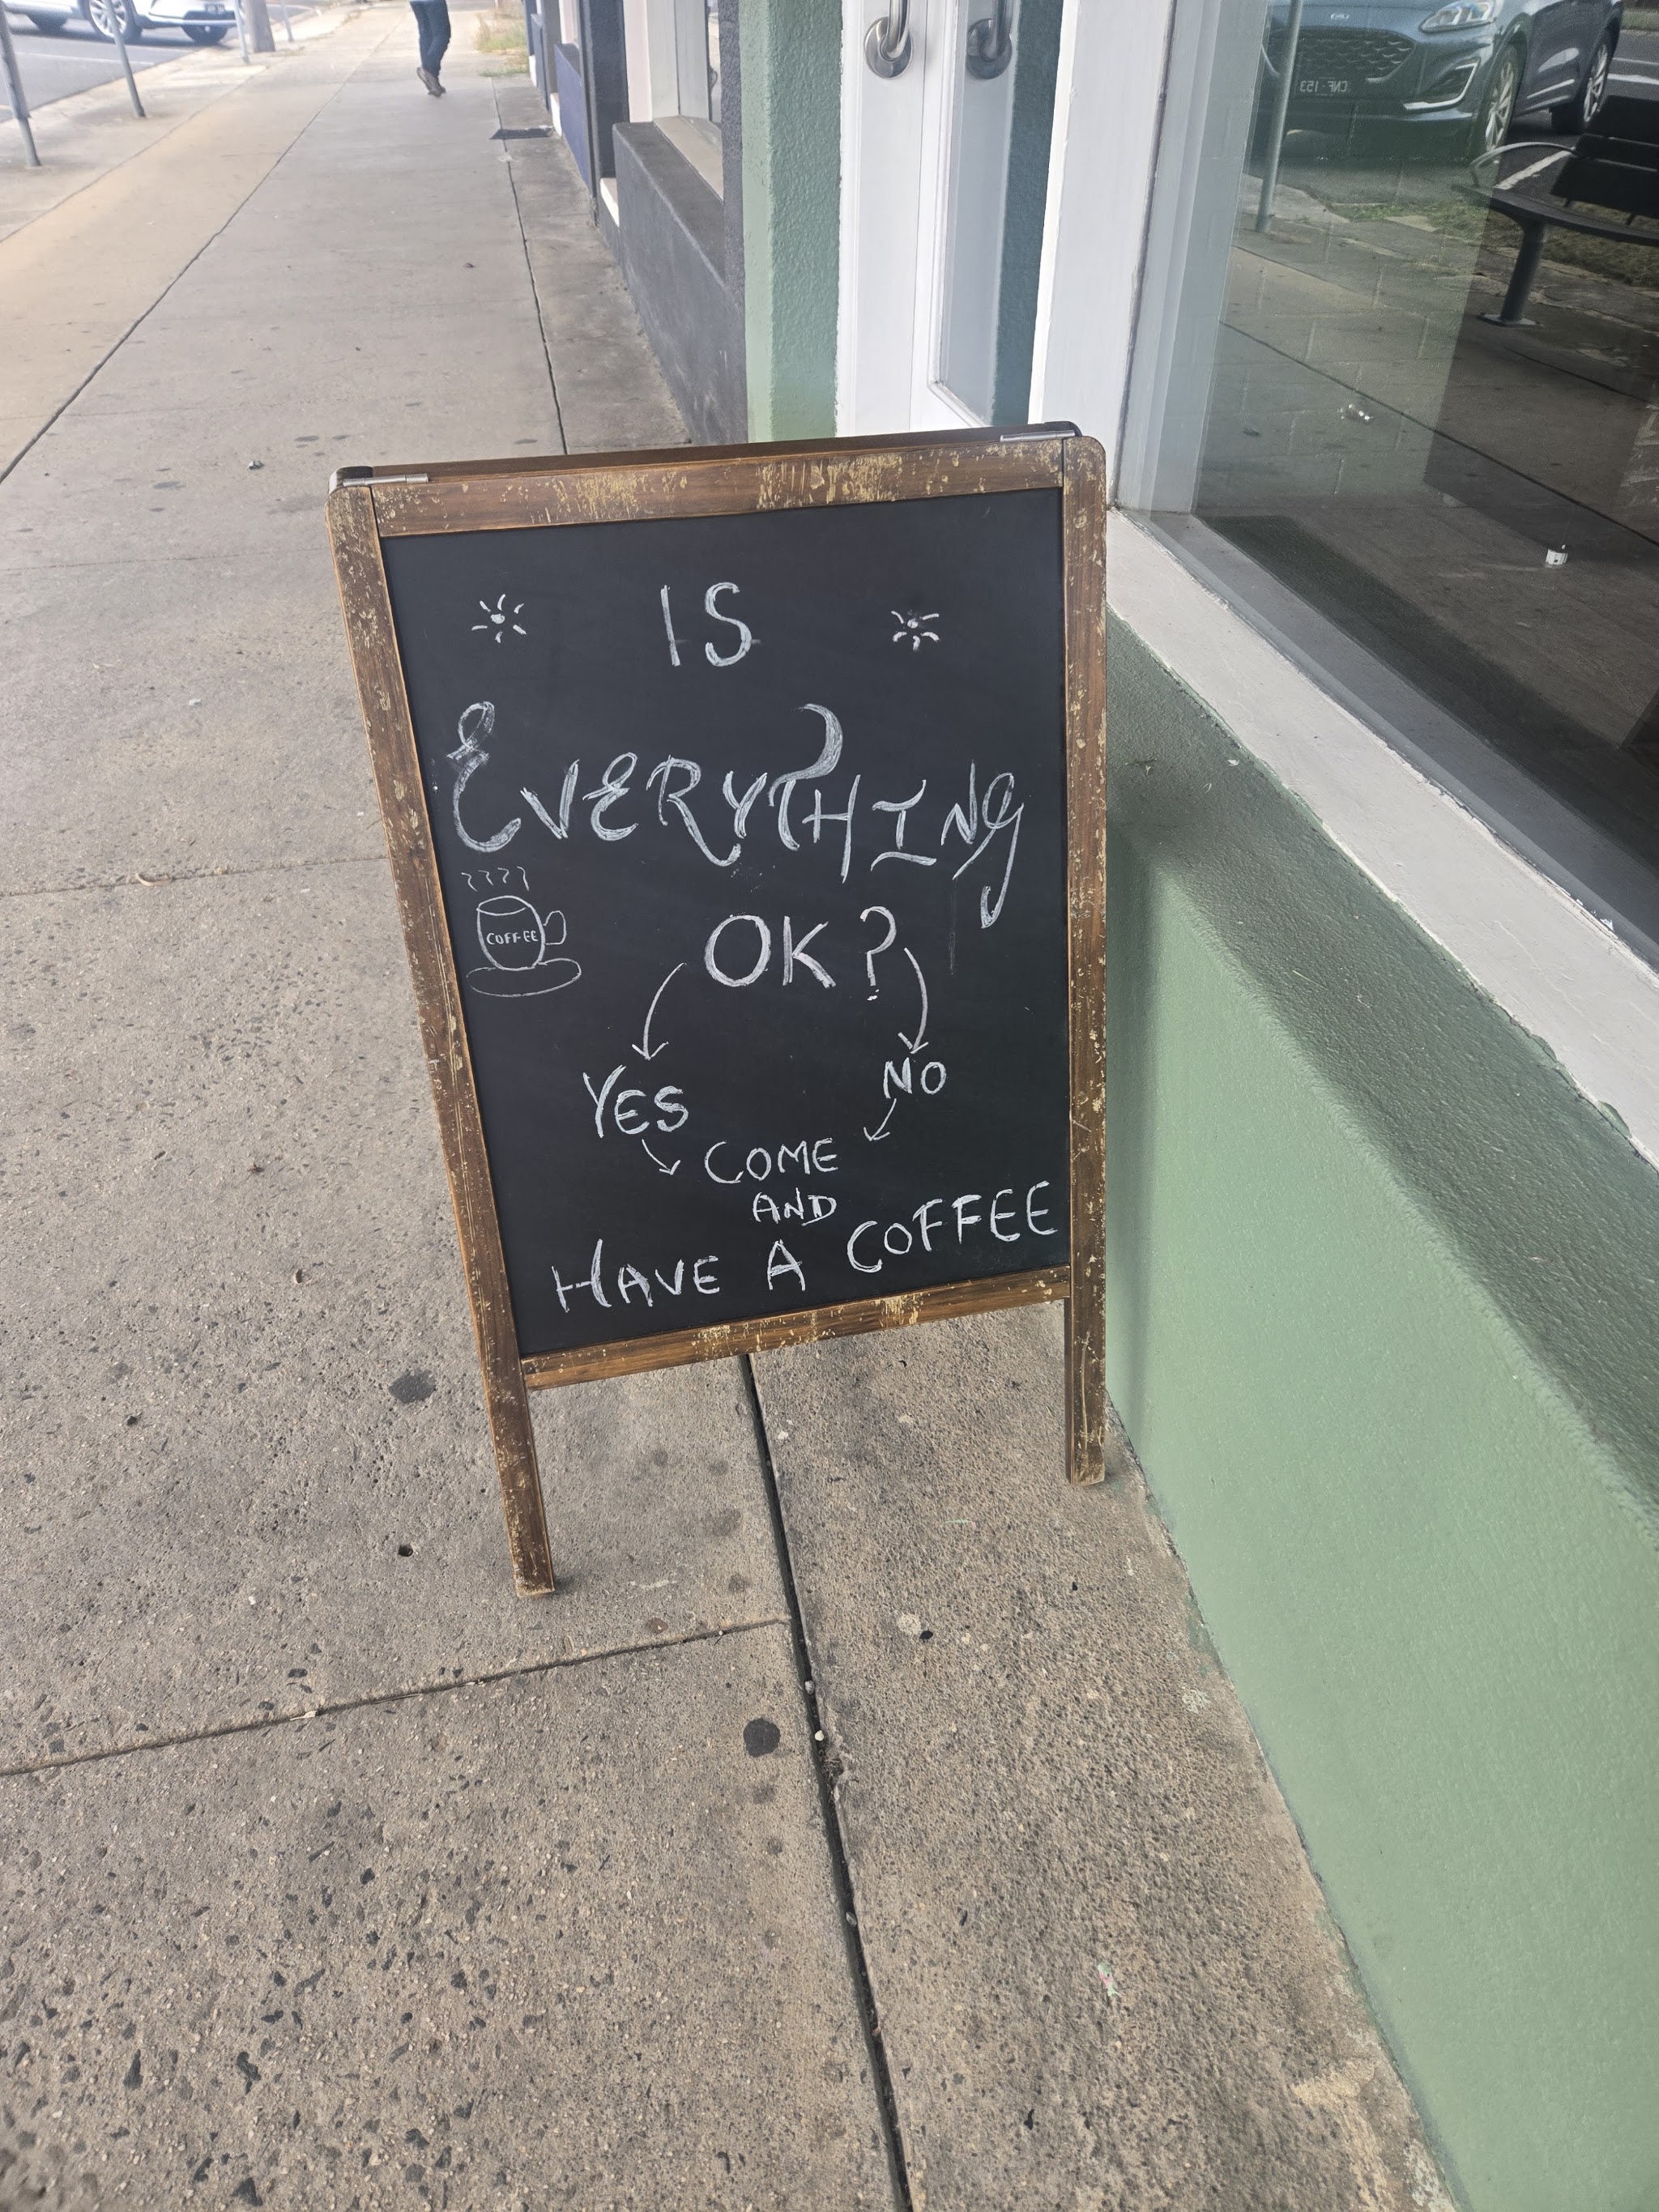 IS
EVERYTHING
COFFEE
OK?
YES NO
COME
AND
HAVE A COFFEE
CNF-153